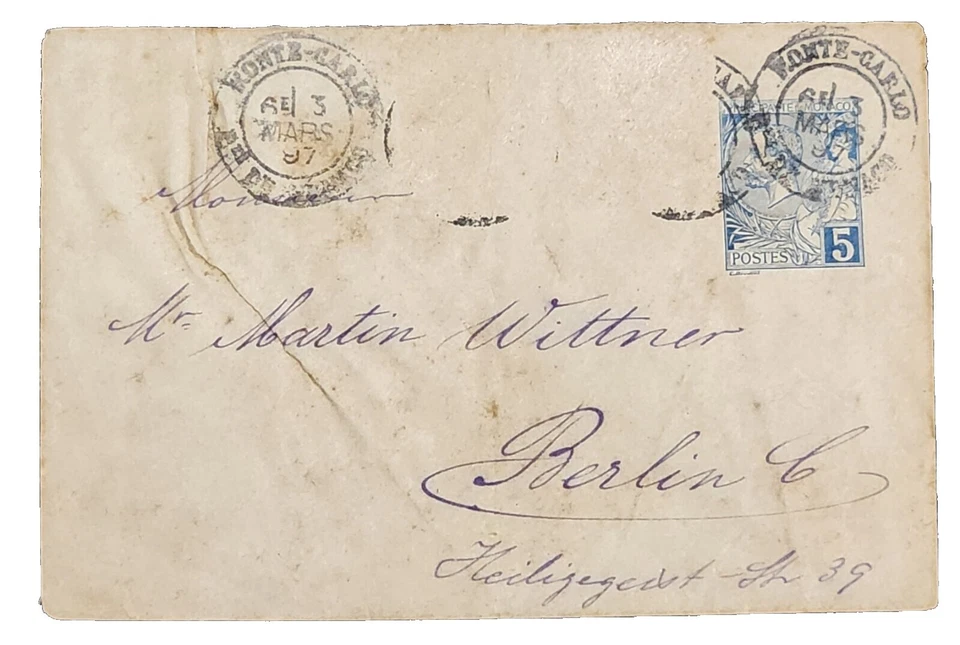 MONTE-CARLO
6E 3
MARS
97
PTÉ DE MONACO
MONTE-CARLO
6E 3
MARS
97
MONACO
POSTES
5
Monsieur
Mr Martin Wittner
Berlin C
Heiligegeist-Str 39